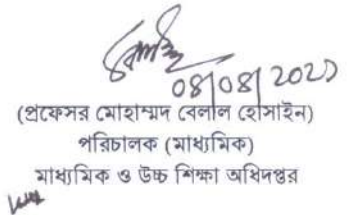 ০৪/০৪/২০২১
(প্রফেসর মোহাম্মদ বেলাল হোসাইন)
পরিচালক (মাধ্যমিক)
মাধ্যমিক ও উচ্চ শিক্ষা অধিদপ্তর